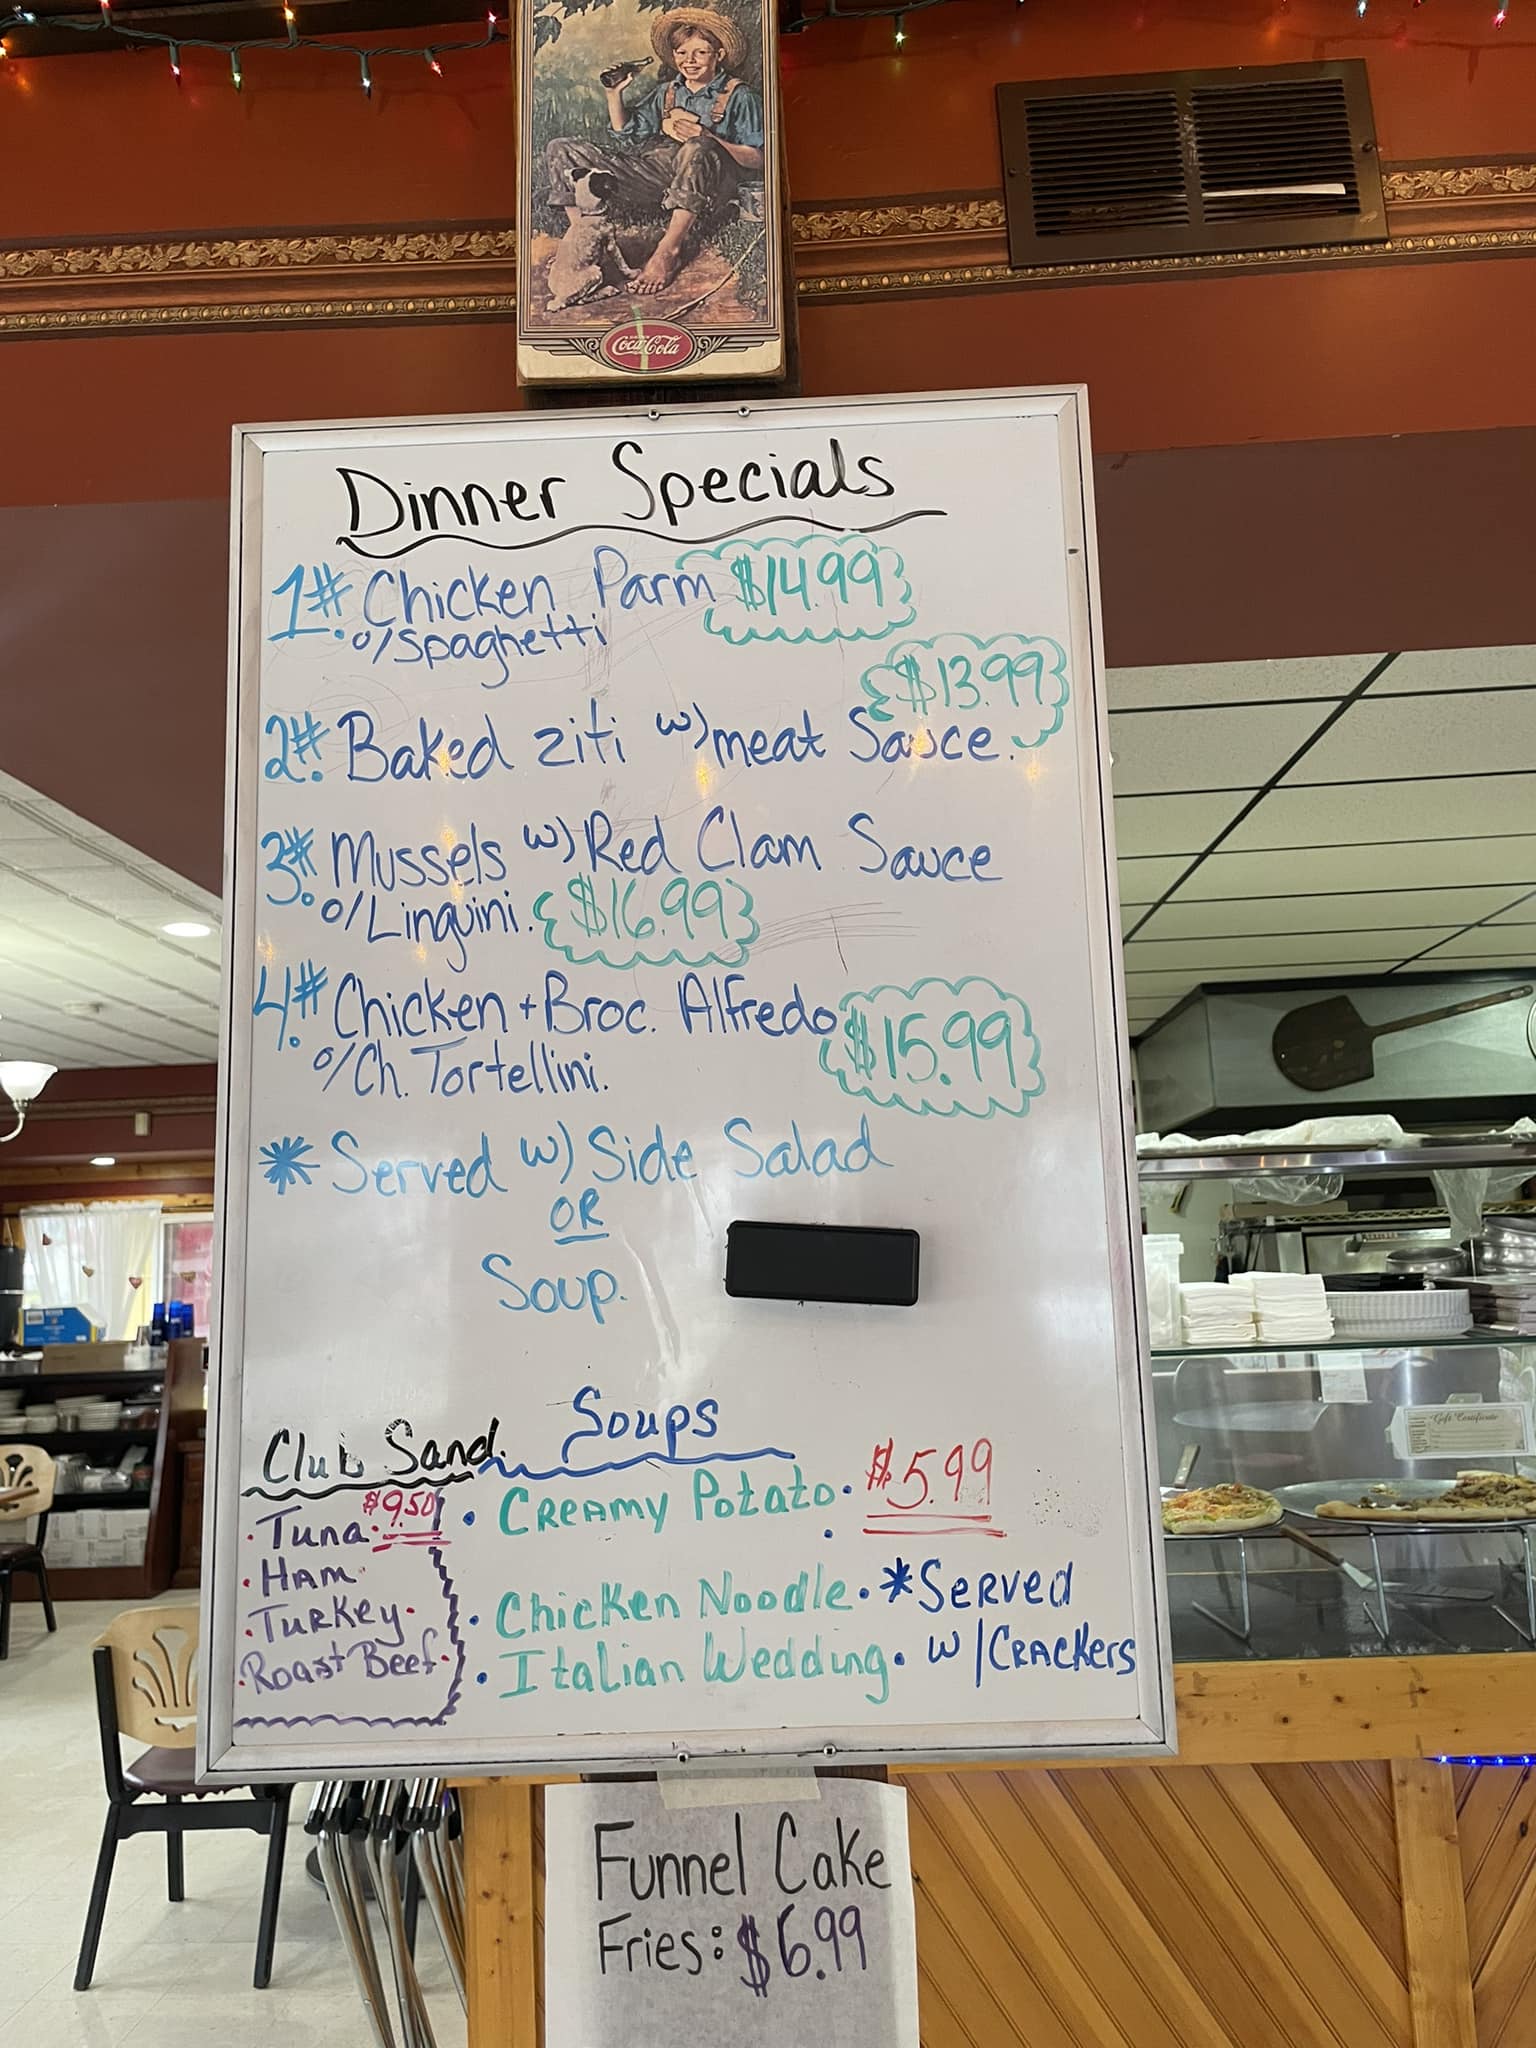 Coca-Cola
Dinner Specials
1#. Chicken Parm $14.99
o/Spaghetti
$13.99
2#. Baked ziti w) meat Sauce.
3#. Mussels w) Red Clam Sauce
o/Linguini. $16.99
4#. Chicken + Broc. Alfredo $15.99
o/Ch. Tortellini.
* Served w) Side Salad
OR
Soup.
Club Sand.
$9.50
• Tuna •
• HAM •
• Turkey •
• Roast Beef •
Soups
• CREAMY Potato • $5.99
• Chicken Noodle • *Served
• Italian Wedding • w/CRACKers
Funnel Cake
Fries: $6.99
Gift Certificate